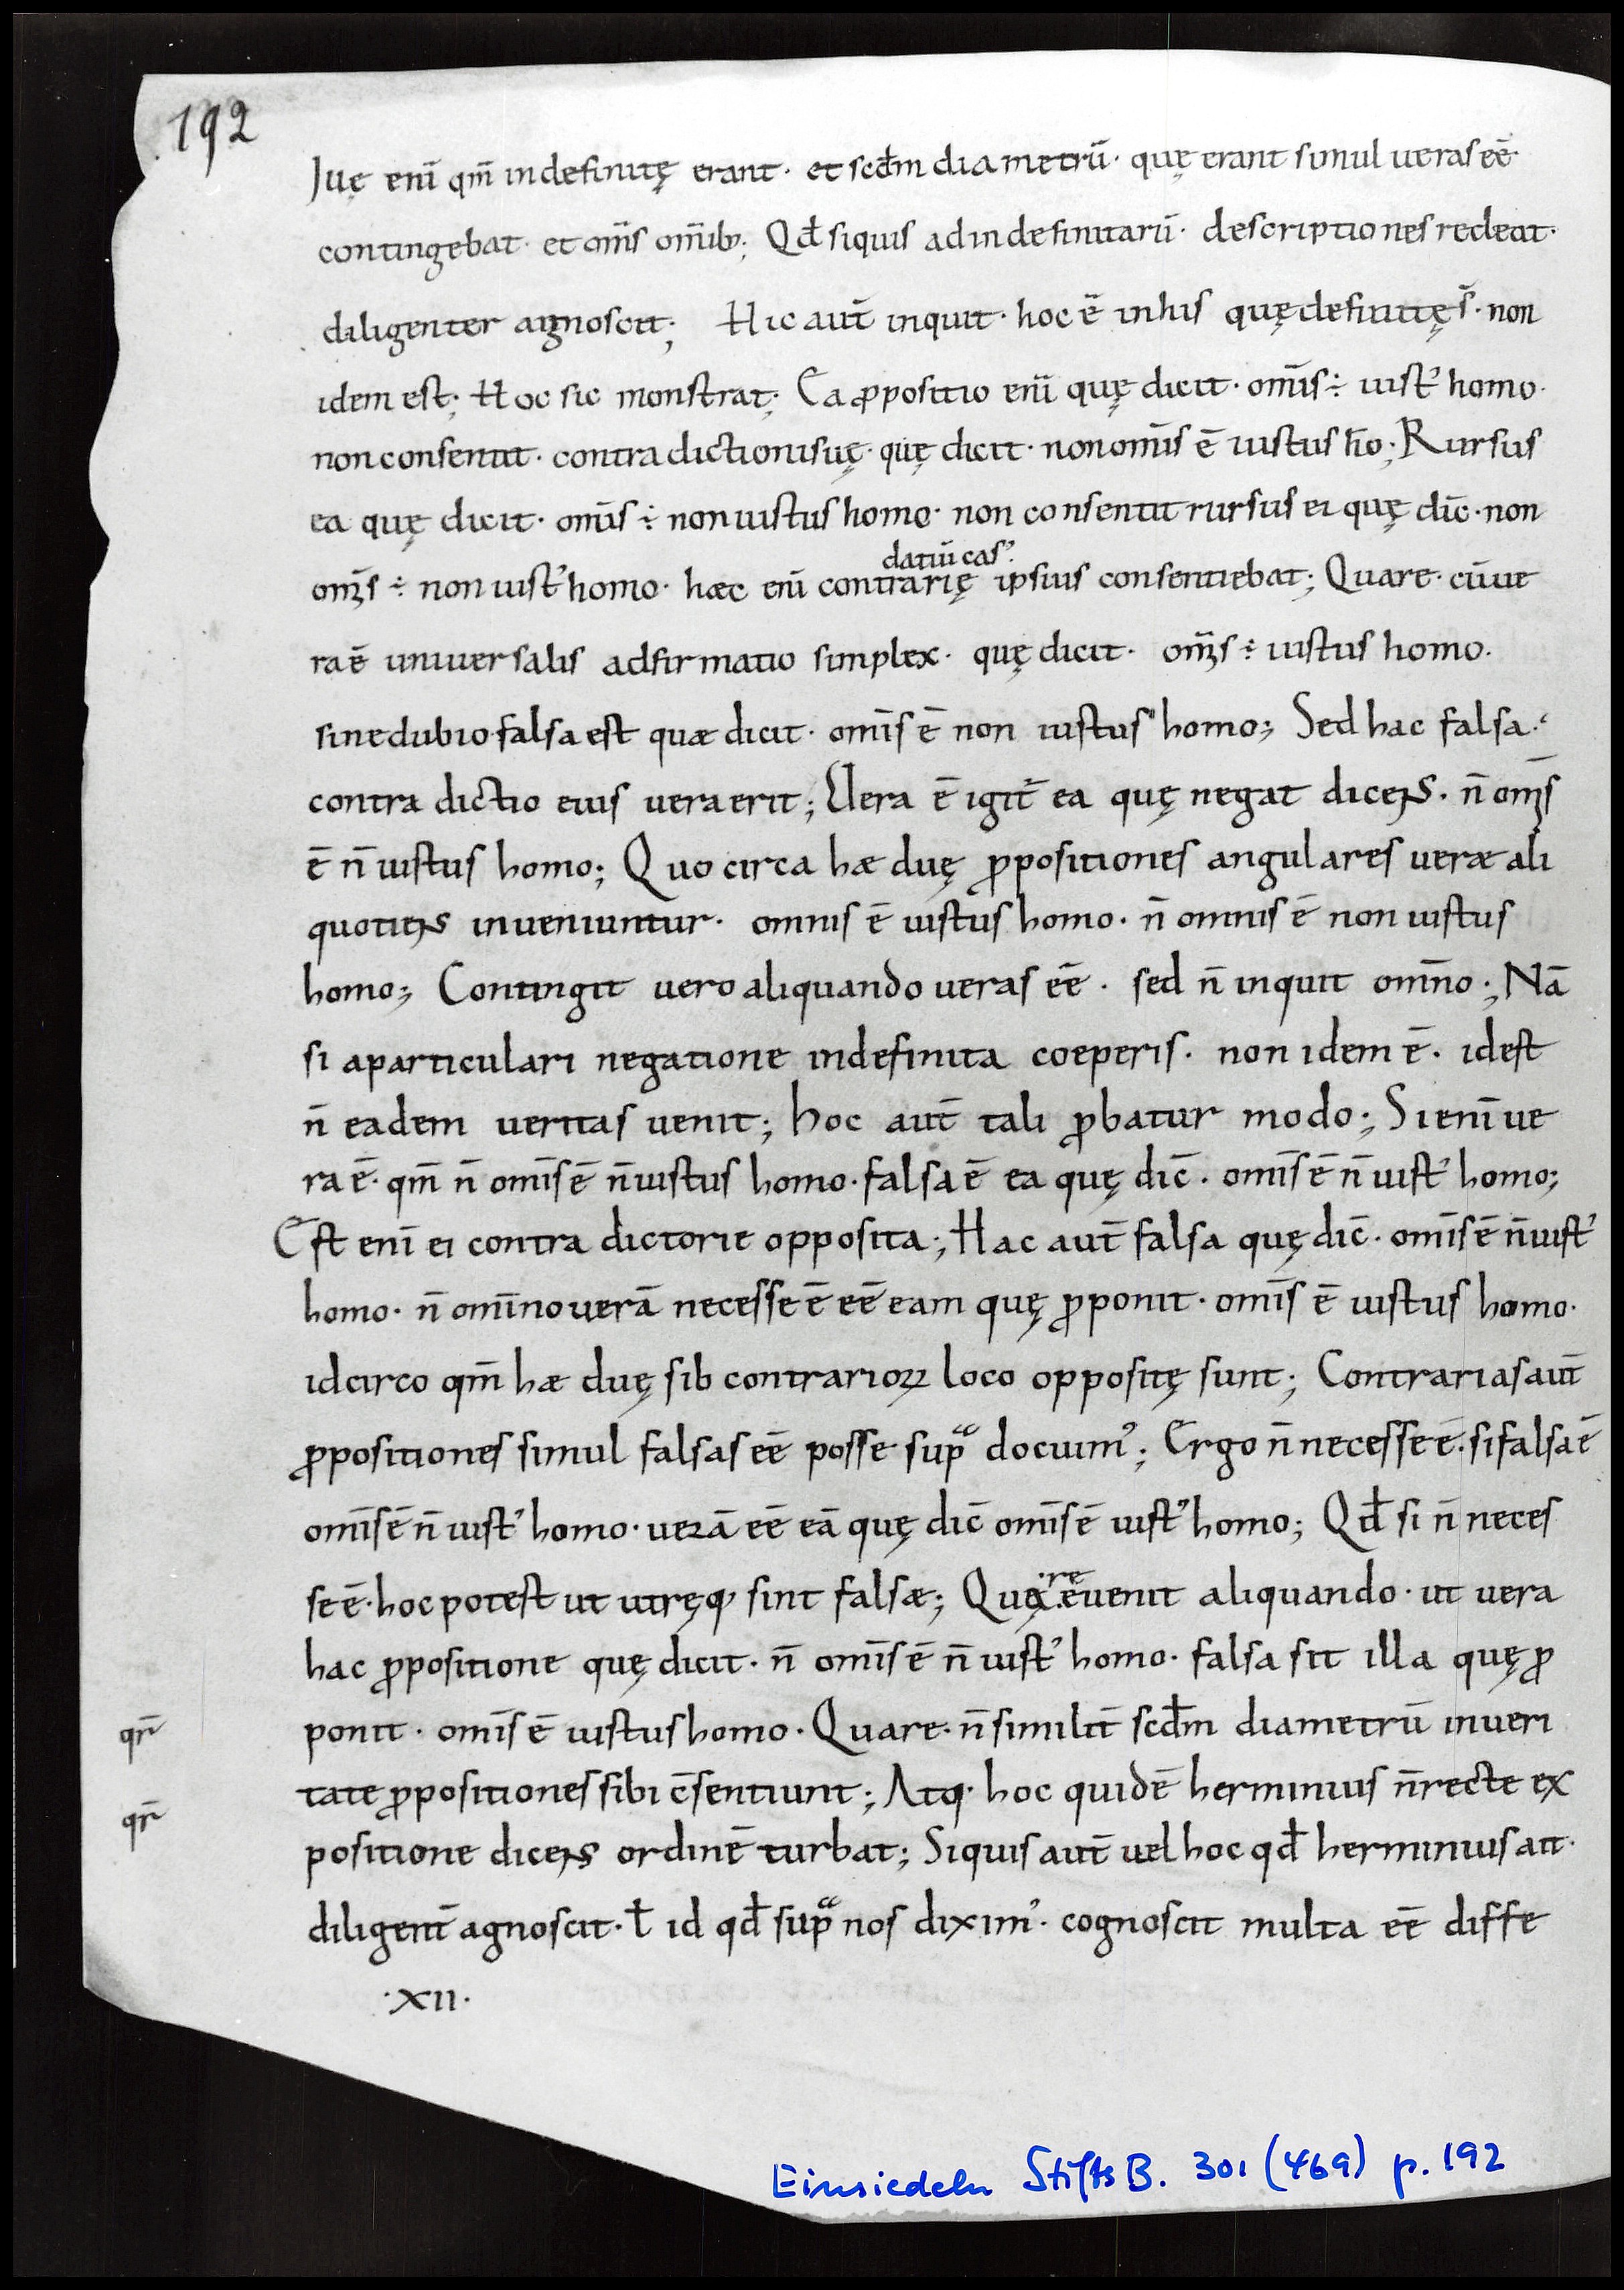 192
Juę eni̅ qm̅ indefinitę erant · et scđm diametrū · quę erant simul ueras ee̅ ·
contingebat · et om̅s omib; · Qđ siquis adindefinitarū · descriptiones redeat ·
diligenter agnoscit; Hic aut̅ inquit · hoc ē inhis quę definitę s̅ · non
idem est; Hoc sic monstrat; Ea ꝓpositio eni̅ quę dicit · omi̅s ÷ iust᾽ homo ·
non consentit · contradictioni suę · quę dicit · non omi̅s ē iustus ho̅; Rursus
ea quę dicit · omi̅s ÷ non iustus homo · non consentit rursus ei quę dic̅ · non
datiui̅ cas᾽
om̅s ÷ non iust᾽ homo · haec eni̅ contrarię ipsius consentiebat; Quare · cū ue
ra ē uniuersalis adfirmatio simplex · quę dicit · om̅s ÷ iustus homo ·
sinedubio falsa est quae dicit · omi̅s ē non iustus homo; Sed hac falsa ·
contra dictio eius uera erit; Uera ē igit̅ ea quę negat dicens · n̅ om̅s
ē n̅ iustus homo; Quo circa hae duę ꝓpositiones angulares uerae ali
quotiens inueniuntur · omnis ē iustus homo · n̅ omnis ē non iustus
homo; Contingit uero aliquando ueras ee̅ · sed n̅ inquit omi̅no; Nā
si aparticulari negatione indefinita coeperis · non idem ē · idest
n̅ eadem ueritas uenit; hoc aut̅ tali ꝓbatur modo; Si eni̅ ue
ra ē · qm̅ n̅ omi̅s ē n̅ iustus homo · falsa ē ea quę dic̅ · omi̅s ē n̅ iust᾽ homo;
Est eni̅ ei contra dictorie opposita; Hac aut̅ falsa quę dic̅ · omi̅s ē n̅ iust᾽
homo · n̅ omi̅no uerā necesse ē ee̅ eam quę ꝓponit · omi̅s ē iustus homo ·
idcirco qm̅ hae duę sib contrarioꝝ loco oppositę sunt; Contrarias aut̅
ꝓpositiones simul falsas ee̅ posse supᵃ docuim᾽; Ergo n̅ necesse ē · si falsa ē
omi̅s ē n̅ iust᾽ homo · uerā ee̅ eā quę dic̅ omi̅s ē iust᾽ homo; Qđ si n̅ neces
se ē · hoc potest ut utręq; sint falsae; Quare euenit aliquando · ut uera
hac ꝓpositione quę dicit · n̅ omi̅s ē n̅ iust᾽ homo · falsa sit illa quę ꝓ
qr̅ ponit · omi̅s ē iustus homo · Quare · n̅ similit̅ scđm diametrū in ueri
tate ꝓpositiones sibi c̅sentiunt; Atq; hoc quidē herminius n̅ recte ex
qr̅ positione dicens ordinē turbat; Siquis aut̅ uel hoc qđ herminius ait ·
diligent̅ agnoscit · ł id qđ supᵃ nos dixim᾽ · cognoscit multa ee̅ diffe
· XII ·
Einsiedeln StiftsB. 301 (469) p. 192